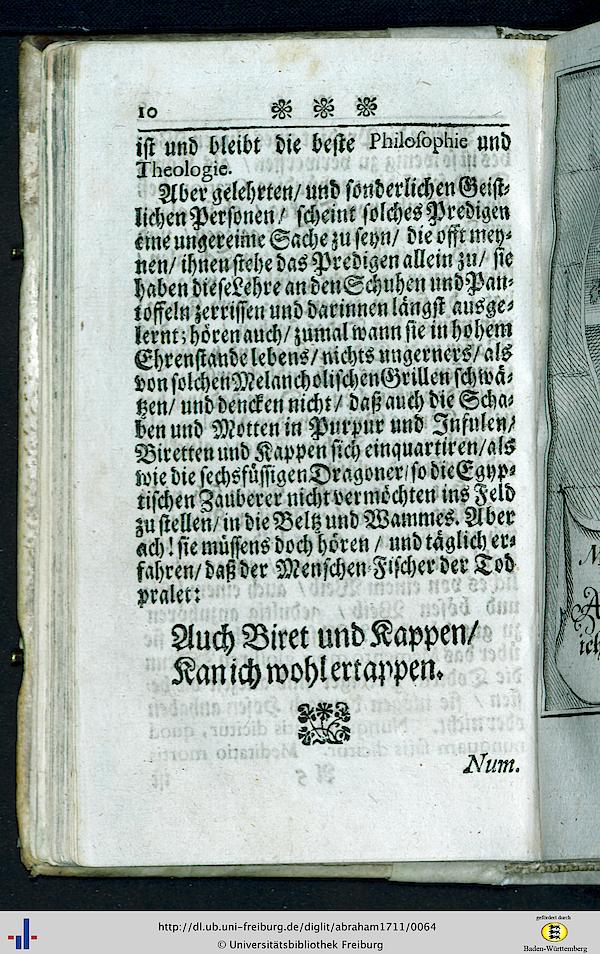 10
ist und bleibt die beste Philosophie und
Theologie.
Aber gelehrten/ und sonderlichen Geist-
lichen Personen/ scheint solches Predigen
eine ungereime Sache zu seyn/ die offt mey-
nen/ ihnen stehe das Predigen allein zu/ sie
haben diese Lehre an den Schuhen und Pan-
toffeln zerrissen und darinnen längst ausge-
lernt; hören auch/ zumal wann sie in hohem
Ehrenstande lebens/ nichts ungerners/ als
von solchen Melancholischen Grillen schwä-
tzen/ und dencken nicht/ daß auch die Scha-
ben und Motten in Purpur und Infulen/
Biretten und Kappen sich einquartiren/ als
wie die sechsfüssigen Dragoner/ so die Egyp-
tischen Zauberer nicht vermöchten ins Feld
zu stellen/ in die Beltz und Wammes. Aber
ach! sie müssens doch hören/ und täglich er-
fahren/ daß der Menschen-Fischer der Tod
pralet:
Auch Biret und Kappen/
Kan ich wohl ertappen.
Num.
M
A
ich
http://dl.ub.uni-freiburg.de/diglit/abraham1711/0064
© Universitätsbibliothek Freiburg
gefördert durch
Baden-Württemberg